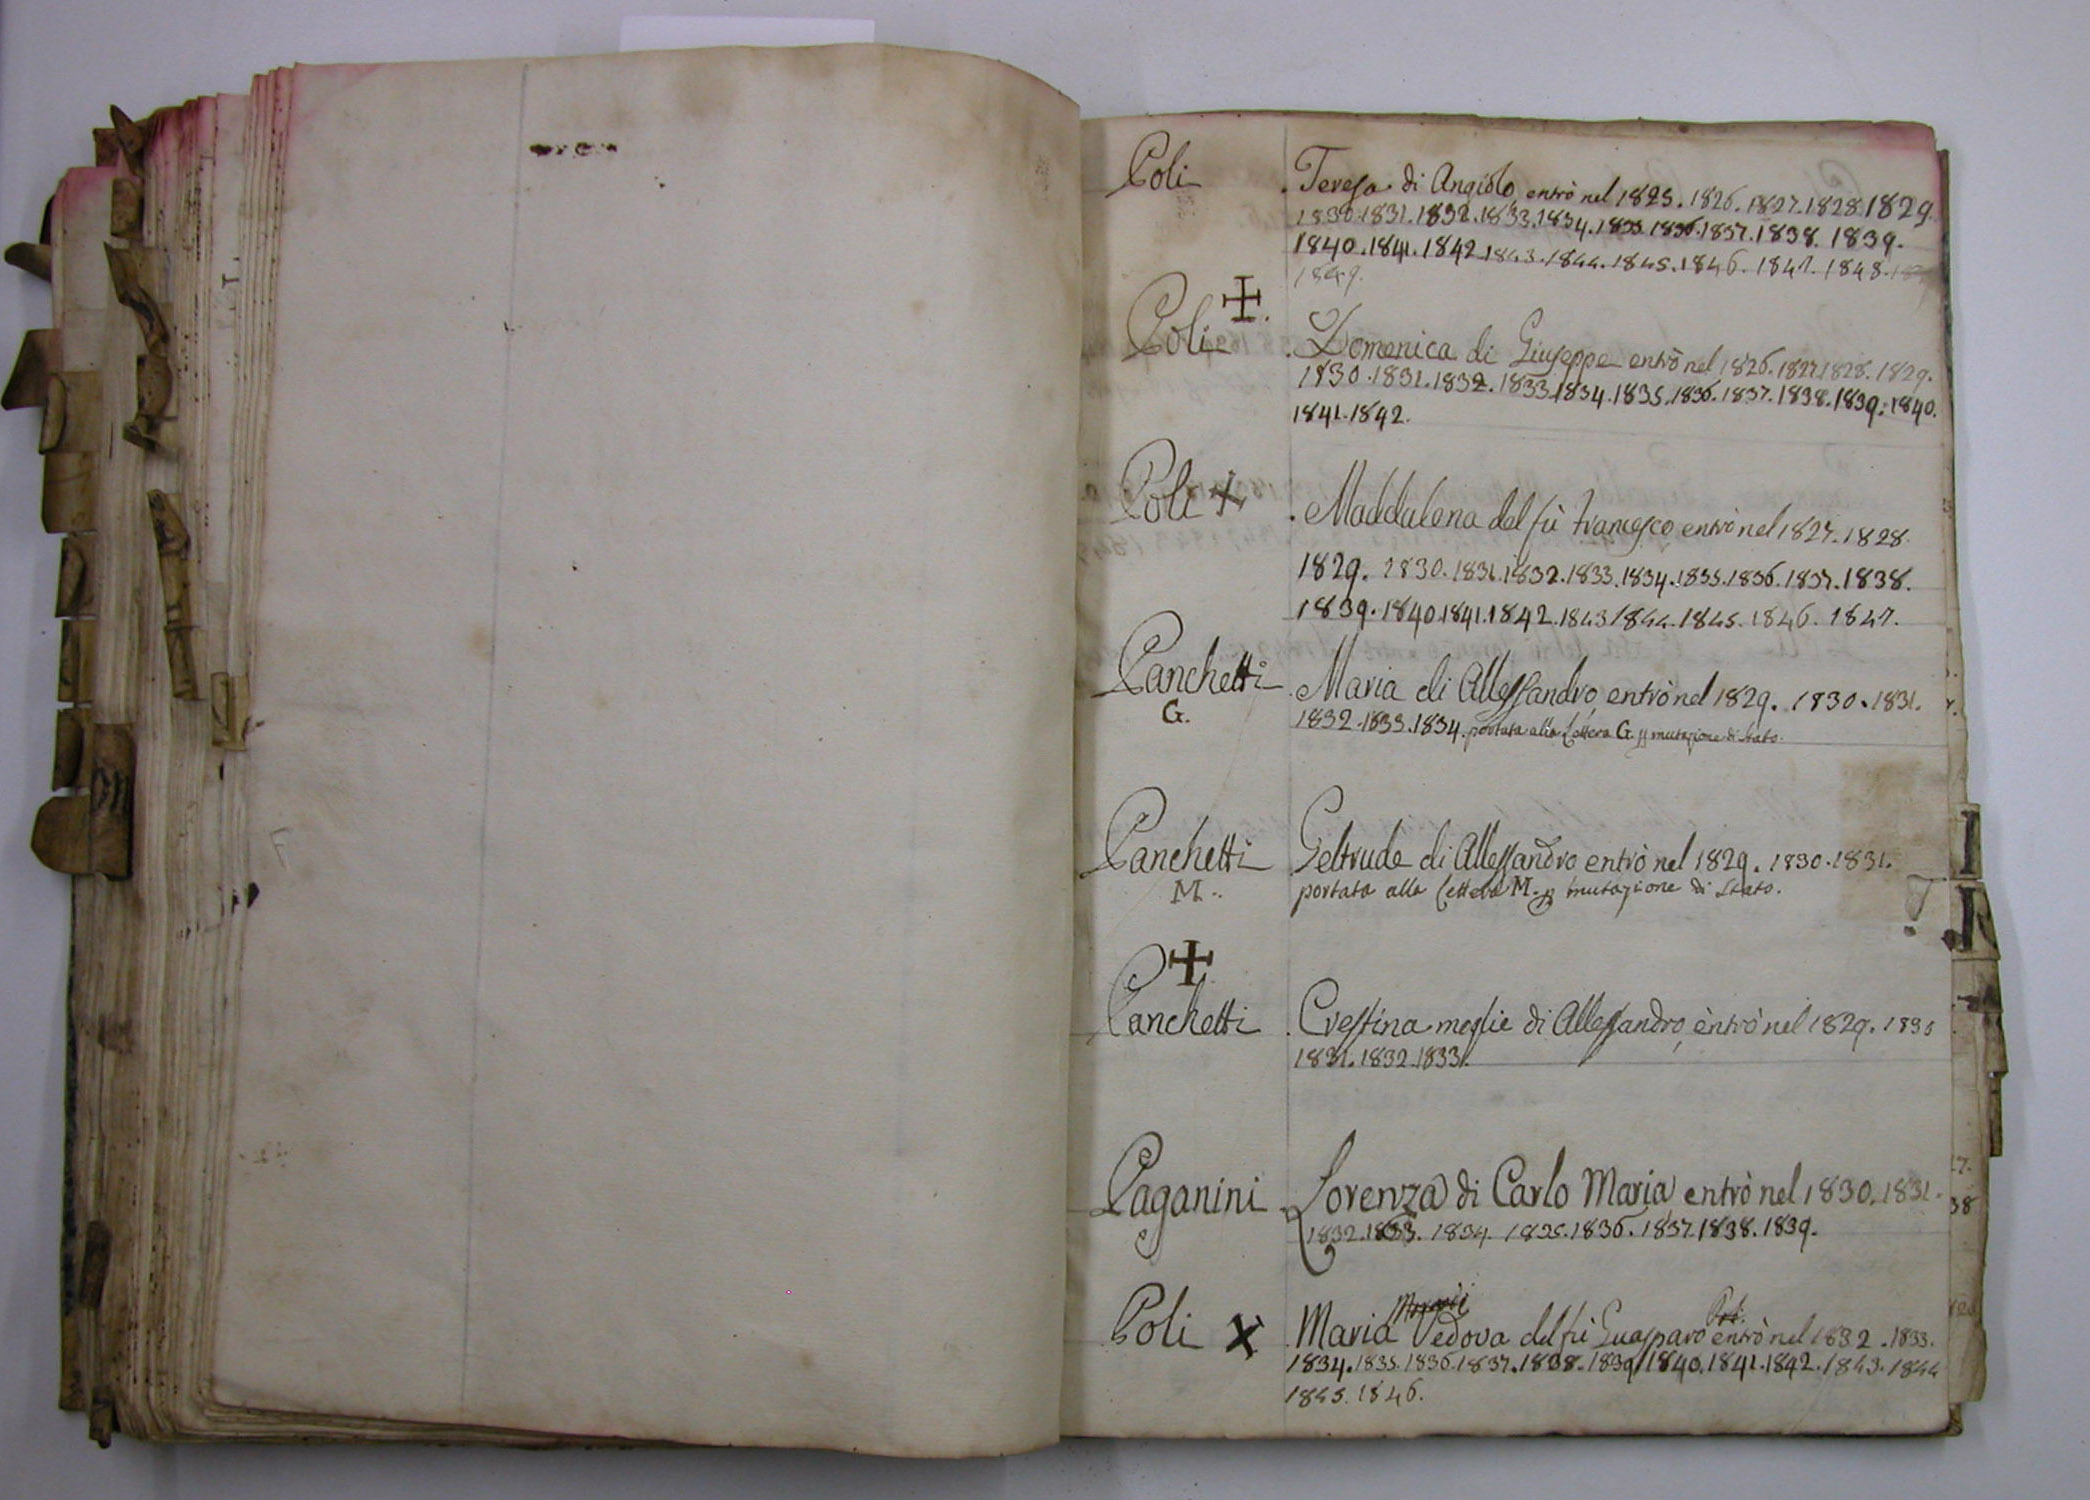 Poli . Teresa di Angiolo entrò nel 1825. 1826. 1827. 1828. 1829.
1830. 1831. 1832. 1833. 1834. 1835. 1836. 1837. 1838. 1839.
1840. 1841. 1842. 1843. 1844. 1845. 1846. 1847. 1848.
1849.
Poli . Domenica di Giuseppe entrò nel 1826. 1827. 1828. 1829.
1830. 1831. 1832. 1833. 1834. 1835. 1836. 1837. 1838. 1839. 1840.
1841. 1842.
Poli . Maddalena del fù Francesco entrò nel 1827. 1828.
1829. 1830. 1831. 1832. 1833. 1834. 1835. 1836. 1837. 1838.
1839. 1840. 1841. 1842. 1843 1844. 1845. 1846. 1847.
Panchetti . Maria di Allessandro, entrò nel 1829. 1830. 1831.
G. 1832. 1833. 1834. portata alla Lettera G. p mutazione di stato.
Panchetti Geltrude di Allessandro entrò nel 1829. 1830. 1831.
M. portata alla Lettera M. p mutazione di Stato.
Panchetti . Crestina moglie di Allessandro, entrò nel 1829. 1830
1831. 1832. 1833.
Paganini . Lorenza di Carlo Maria entrò nel 1830. 1831.
1832. 1833. 1834. 1835. 1836. 1837. 1838. 1839.
Poli
Poli X Maria Vedova del fù Guasparo entrò nel 1832. 1833.
1834. 1835. 1836. 1837. 1838. 1839. 1840. 1841. 1842. 1843. 1844
1845. 1846.